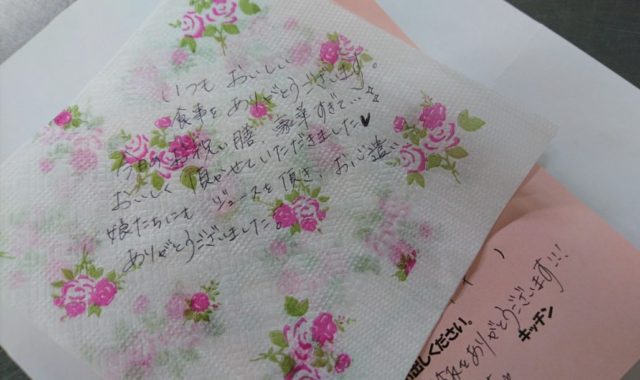 いつも おいしい
食事を ありがとうございます
今日の お祝い膳、豪華すぎて…
おいしく 頂かせていただきました♥
娘たちにも ジュースを頂き、お心遣い
ありがとうございました。
ください。
をありがとうございます!!!
キッチン